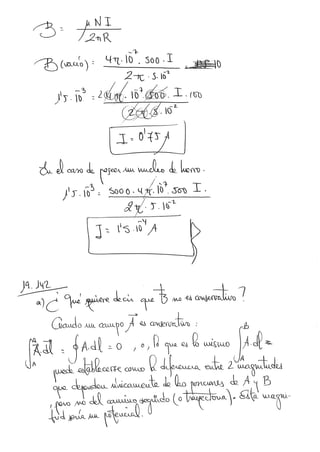 B = μNI / 2πR
B (vacío) = 4π·10⁻⁷ · 500 · I / 2π · 5·10⁻²
1'5·10⁻³ = 2 4π · 10⁻⁷ 500 · I · 100 / 2π 5 · 10⁻²
I = 0'75 A
En el caso de poseer un núcleo de hierro.
1'5·10⁻³ = 5000 · 4π · 10⁻⁷ · 500 I · / 2π · 5 · 10⁻²
I = 1'5 · 10⁻⁴ A
19.142
a) ¿ Qué quiere decir que B no es conservativo ?
Cuando un campo A es conservativo :
∫ A·dl = ∮ A·dl = 0 , o, lo que es lo mismo ∫ A·dl =
puede establecerse como la diferencia entre 2 magnitudes
que dependen únicamente de las posiciones de A y B
, pero no del camino seguido (o trayectoria). Esta magni-
tud sería un potencial.